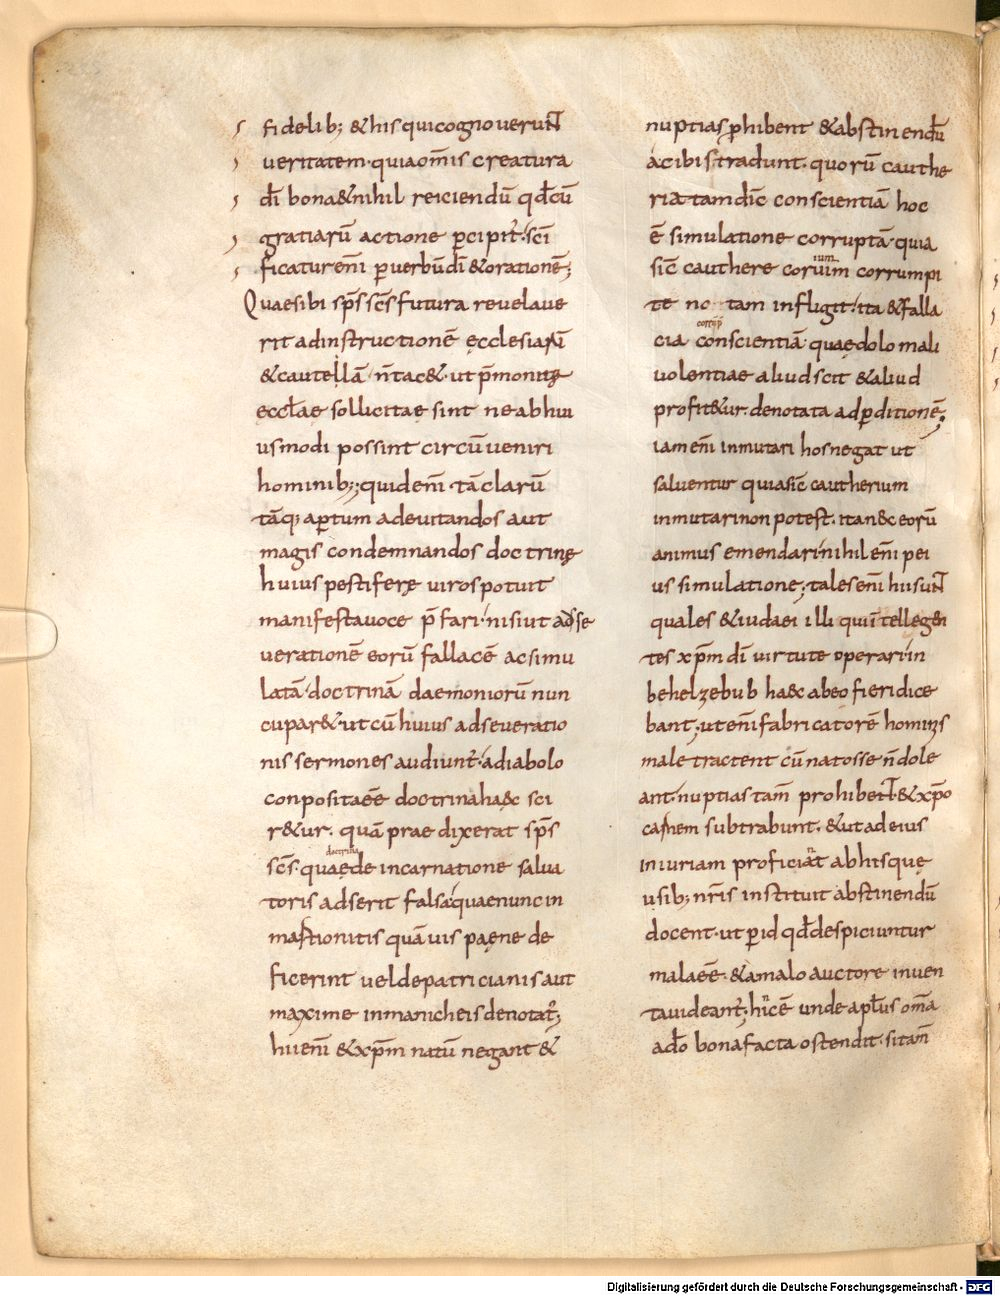 fidelib; & his qui cognoverunt
veritatem · quia om̄is creatura
dī bona & nihil reiciendū qđ cū
gratiarū actione ꝑcipit̄ · sc̄i
ficatur enī ꝑ verbū dī & orationē;
Quae sibi sp̄s sc̄s futura revelave
rit ad instructionē ęcclesiarū
& cautellā · n̄ tac& · ut p̄monitę
ęccl̄ae sollicitae sint ne ab hui
usmodi possint circūveniri
hominib; ; quid enī tā clarū
tāq; aꝑtum ad evitandos aut
magis condemnandos doctrinę
huius pestiferę viros potuit
manifesta voce p̄fari · nisi ut adse
verationē eorū fallacē ac simu
latā · doctrinā daemoniorū nun
cupar& · ut cū huius adseveratio
nis sermones audiunt̄ · a diabolo
conposita eē doctrina haec sci
r&ur · quā praedixerat sp̄s
sc̄s · quae de incarnatione salva
doctrina
toris adserit falsa · quae nunc in
mastionitis quāvis paene de
ficerint vel de patricianis aut
maxime in manicheis denotat̄;
hi enī & xp̄m natū negant &
nuptias ꝓhibent & abstinendū
a cibis tradunt · quorū cauthe
riatam dic̄ conscientiā hoc
ē simulatione corruptā · quia
sic̄ cauthere corium corrumpi
ium
te notam infligit · ita & falla
corrup
cia conscientiā · quae dolo mali
volentiae aliud scit & aliud
profit&ur · denotata ad ꝑditionē;
iam enī inmutari hos negat ut
salventur quia sic̄ cautherium
inmutari non potest · ita n&c eorū
animus emendari · nihil enī pei
us simulatione; tales enī hi sunt
quales & iudaei illi qui intellegen
tes xp̄m dī virtute operari · in
behelzebub haec ab eo fieri dice
bant; ut enī fabricatorē hominis
male tractent cū natos se n̄ dole
ant · nuptias tam̄ prohibent & xp̄o
carnem subtrahunt · & ut ad eius
iniuriam proficiant ab his quę
n
usib; nr̄is instituit abstinendū
docent · ut ꝑ id qđ despiciuntur
mala eē · & a malo auctore inven
ta videant̄; hinc ē unde apl̄us om̄a
a dō bona facta ostendit · si tam̄